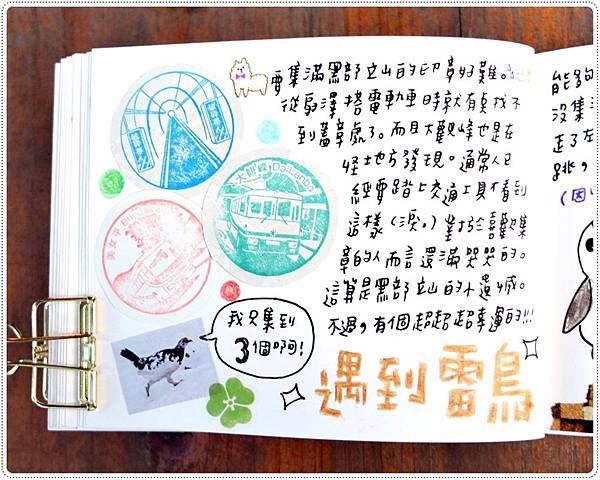 要集滿黑部立山的印章好難。
從扇澤搭電動車時就有負找不
到蓋章處了。而且大觀峰也是在
怪地方發現。通常人已
經要踏上交通工具才看到
這樣(淚。)對於喜歡集
章的人而言還滿哭哭的。
這算是黑部立山的小遺憾。
不過,有個超超超幸運的!!!
大観峰 Daikanbo
美女平
我只集到
3個啊!
遇到雷鳥
能夠
沒集
走了左
跳,
(因